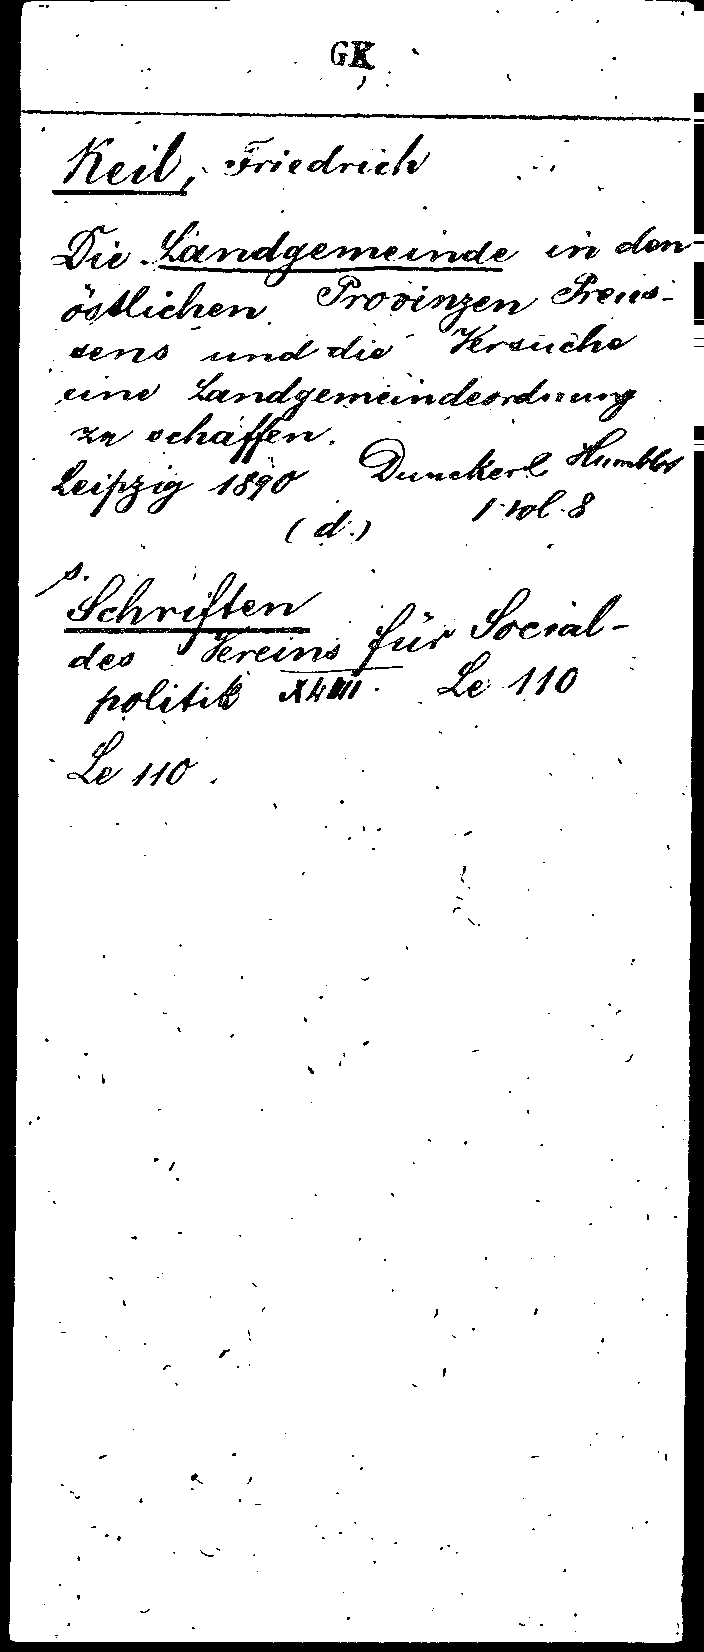 GK
Keil, Friedrich
Die Landgemeinde in den
östlichen Provinzen Preus-
sens und die Versuche
eine Landgemeindeordnung
zu schaffen.
Leipzig 1890 Duncker & Humblot
(d.) 1 vol. 8
s.
Schriften
des Vereins für Social-
politik Le 110
Le 110.